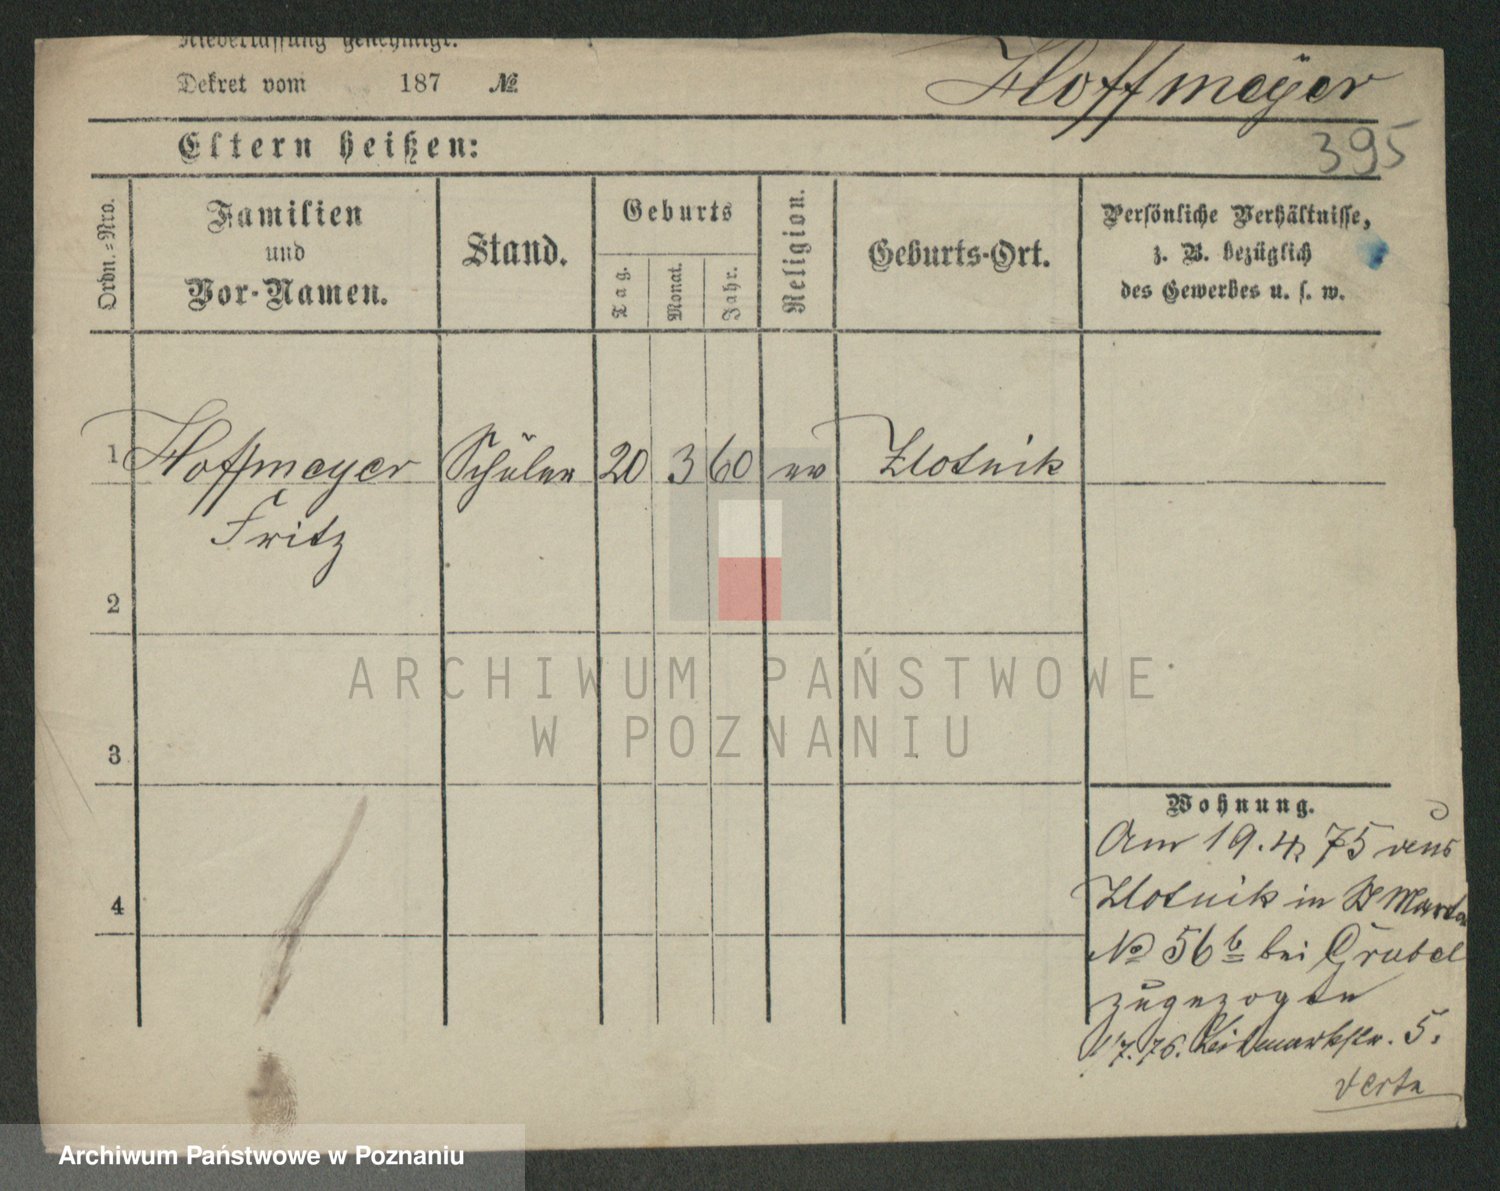 Niederlassung genehmigt.
Dekret vom 187 №
Hoffmeÿer
Eltern heißen:
395
Ordn.=Nro.
Familien
und
Vor-Namen.
Stand.
Geburts
Tag.
Monat.
Jahr.
Religion.
Geburts-Ort.
Persönliche Verhältnisse,
z. B. bezüglich
des Gewerbes u. s. w.
1 Hoffmeyer Schüler 20 3 60 ev Zlotnik
Fritz
2
3
4
Wohnung.
Am 19.4 75 von
Zlotnik in St Martin
№ 56 b bei Grubel
zugezogen
1/7.76. 5.
verte
ARCHIWUM PAŃSTWOWE
W POZNANIU
Archiwum Państwowe w Poznaniu